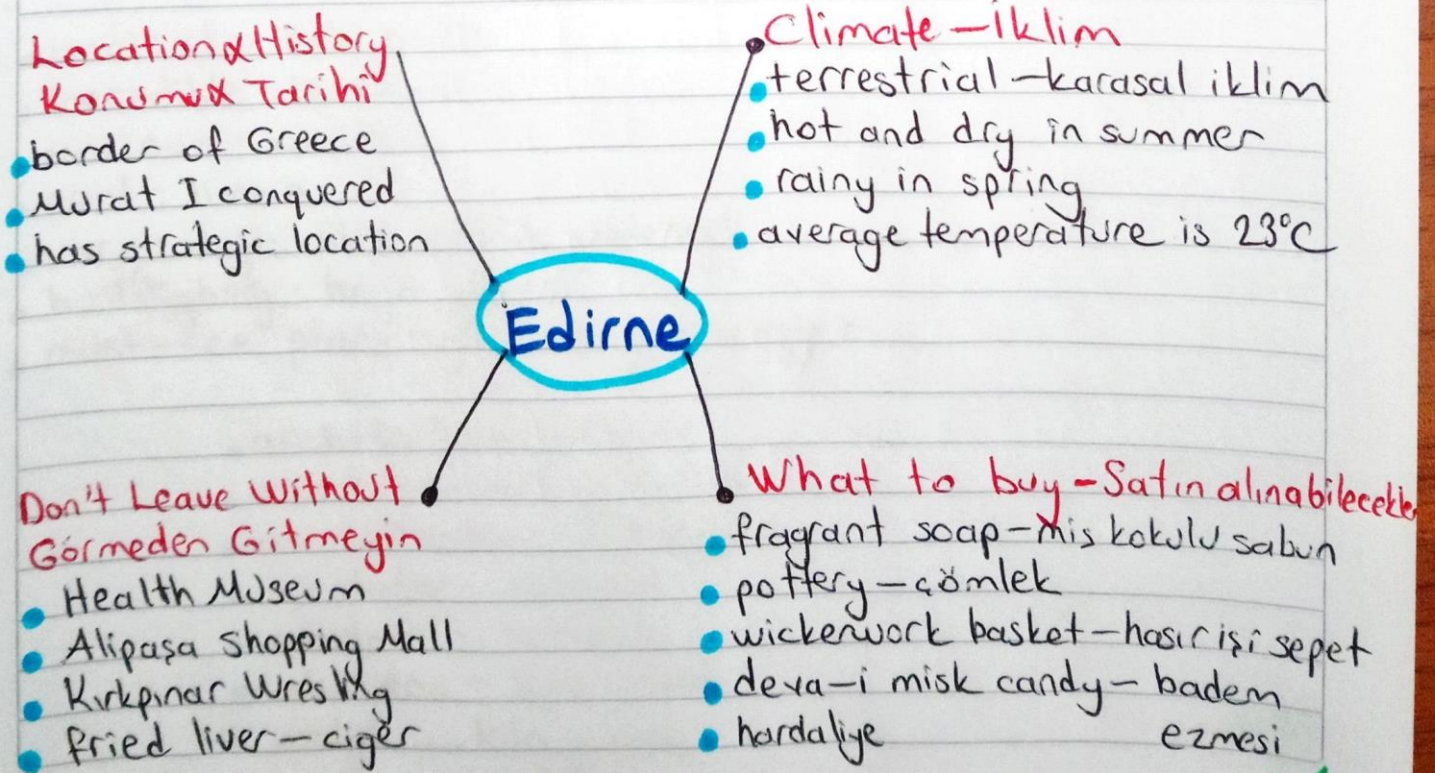 Location & History
Konumu & Tarihi
border of Greece
Murat I conquered
has strategic location
Climate - İklim
terrestrial - karasal iklim
hot and dry in summer
rainy in spring
average temperature is 23°C
Edirne
Don't Leave Without
Görmeden Gitmeyin
Health Museum
Alipaşa Shopping Mall
Kırkpınar Wrestling
fried liver - ciğer
What to buy - Satın alınabilecekler
fragrant soap - mis kokulu sabun
pottery - çömlek
wickerwork basket - hasır işi sepet
deva-i misk candy - badem
hardaliye ezmesi